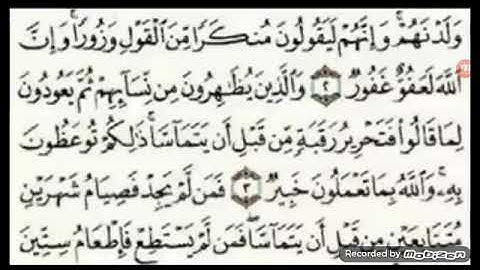 وَلَدْنَهُمْ ۚ وَإِنَّهُمْ لَيَقُولُونَ مُنكَرًا مِّنَ ٱلْقَوْلِ وَزُورًا ۚ وَإِنَّ
ٱللَّهَ لَعَفُوٌّ غَفُورٌ ٢ وَٱلَّذِينَ يُظَٰهِرُونَ مِن نِّسَآئِهِمْ ثُمَّ يَعُودُونَ
لِمَا قَالُوا۟ فَتَحْرِيرُ رَقَبَةٍ مِّن قَبْلِ أَن يَتَمَآسَّا ۚ ذَٰلِكُمْ تُوعَظُونَ
بِهِۦ ۚ وَٱللَّهُ بِمَا تَعْمَلُونَ خَبِيرٌ ٣ فَمَن لَّمْ يَجِدْ فَصِيَامُ شَهْرَيْنِ
مُتَتَابِعَيْنِ مِن قَبْلِ أَن يَتَمَآسَّا ۖ فَمَن لَّمْ يَسْتَطِعْ فَإِطْعَامُ سِتِّينَ
Recorded by
mobizen